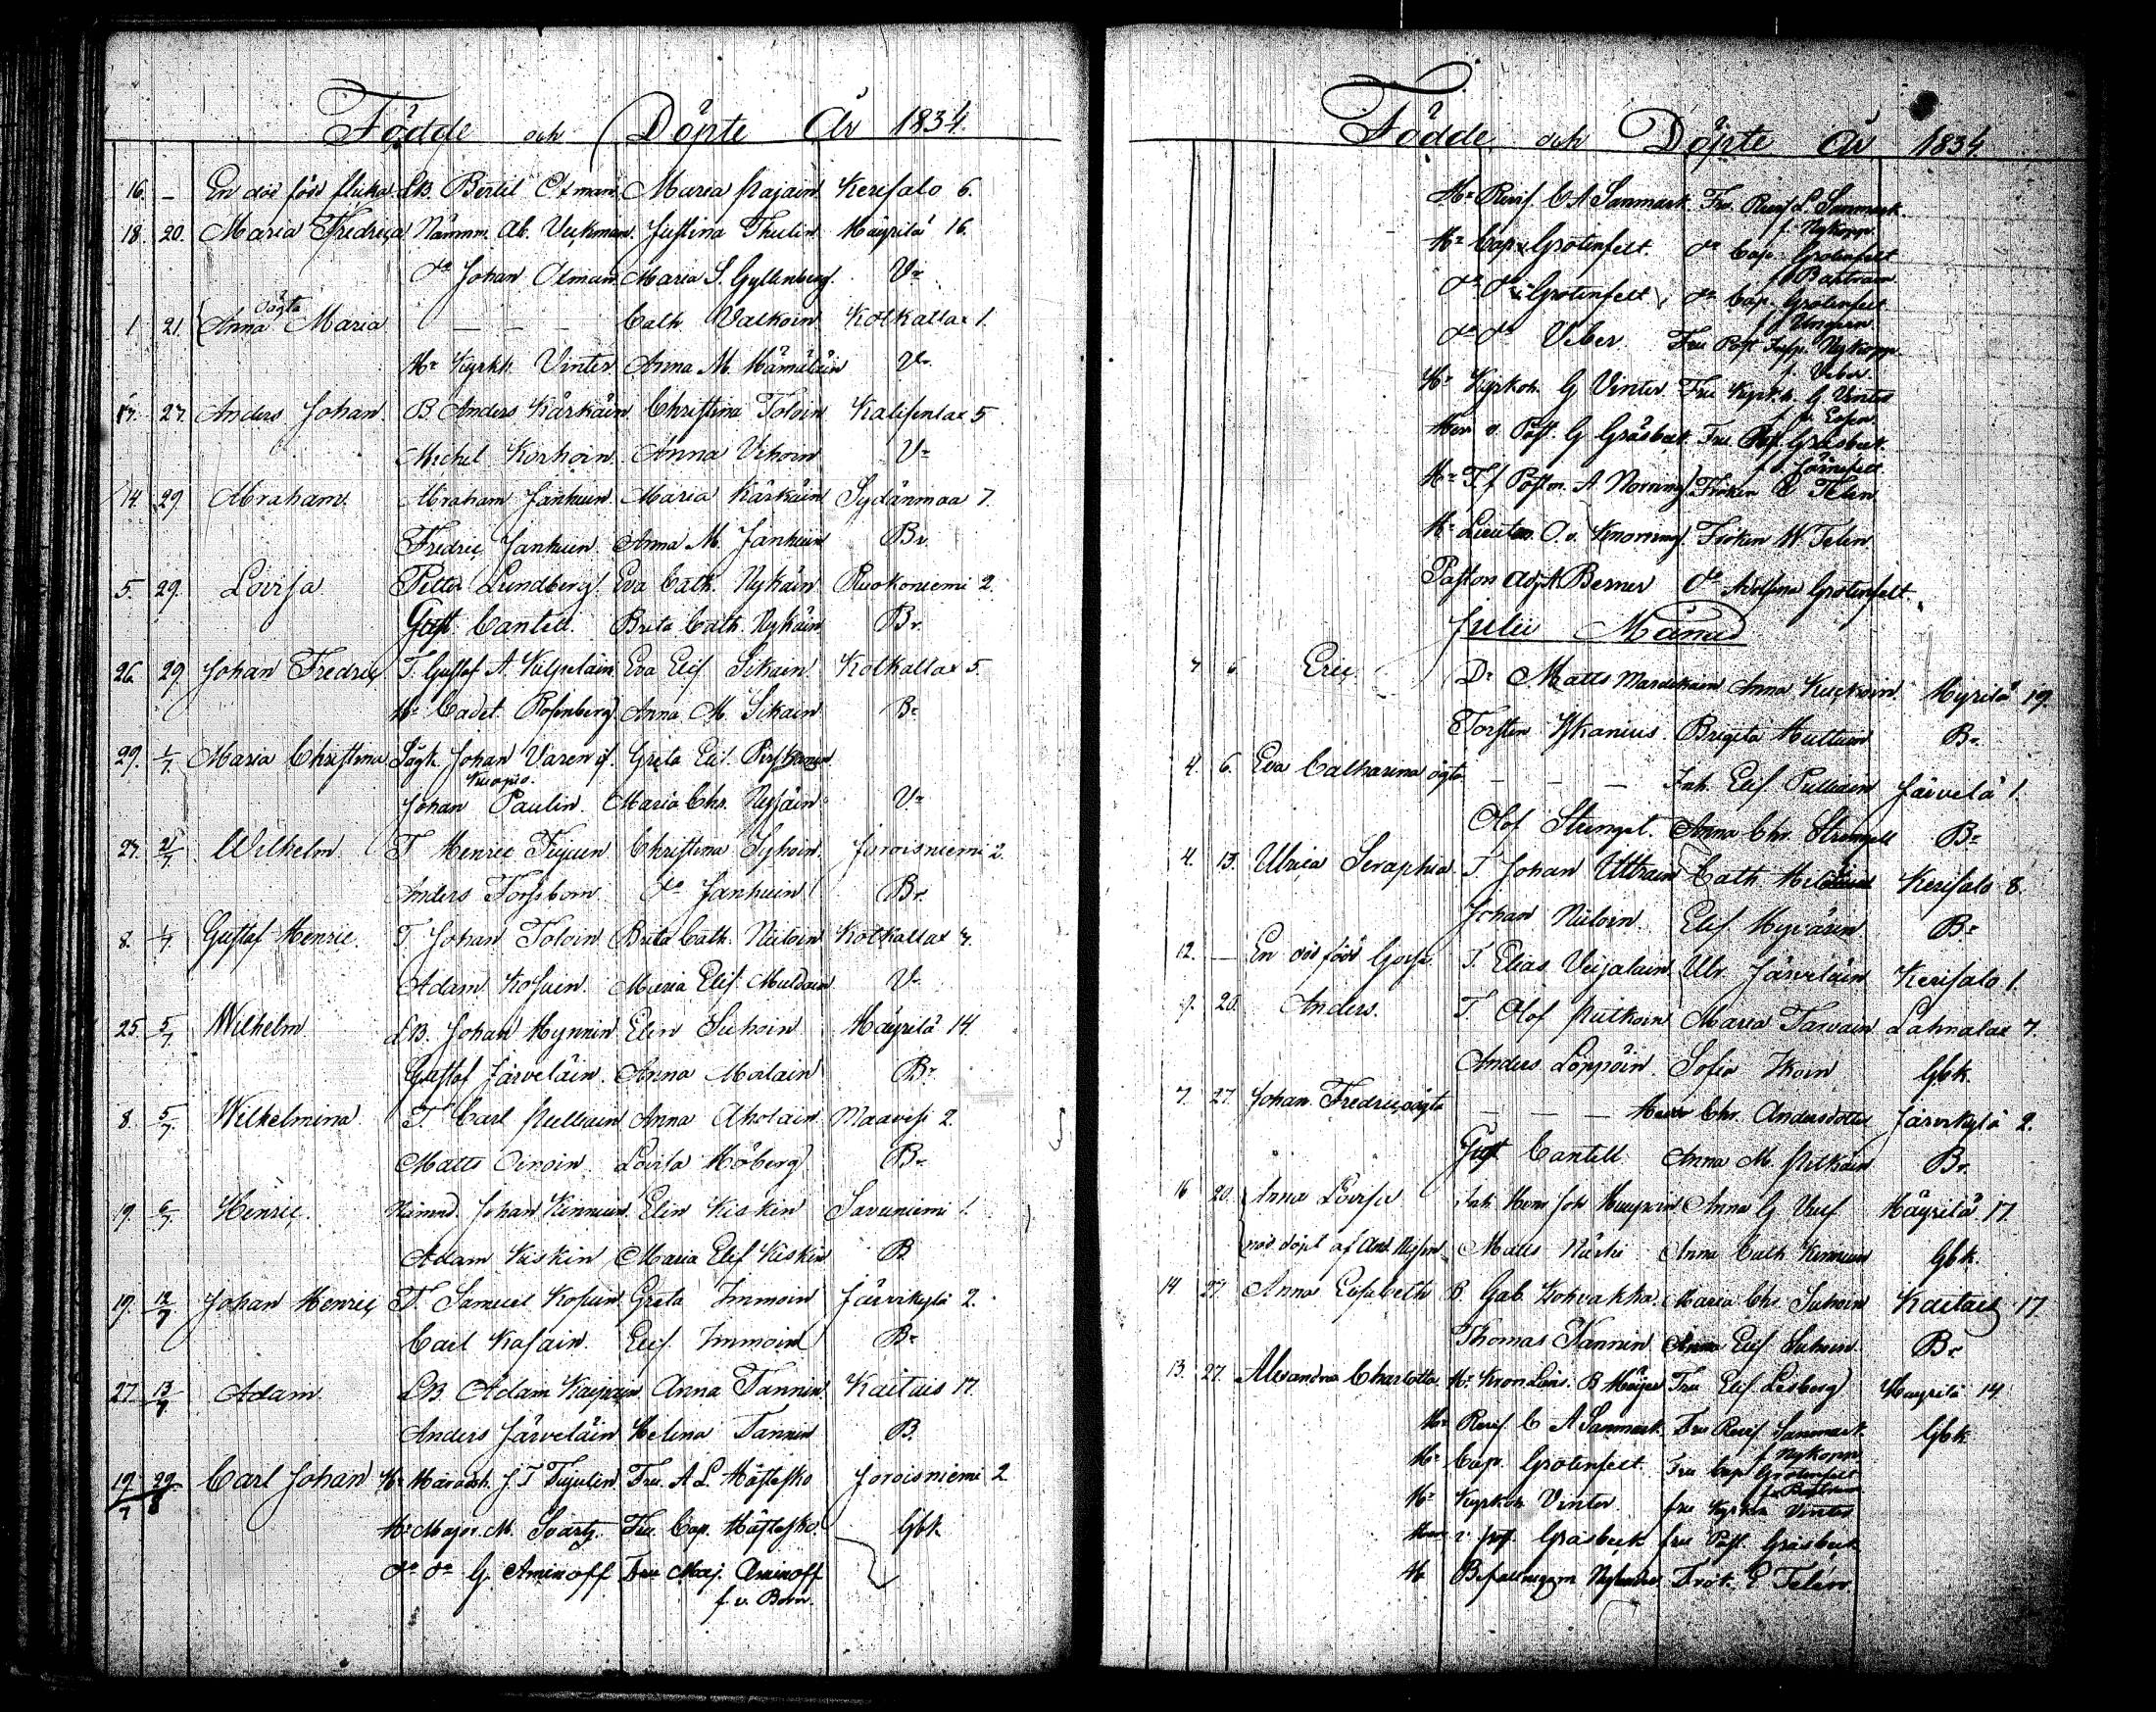 Födde och Döpte År 1834.
16. — En död född flicka LB. Bertil Öhman Maria Pajain Kerisalo 6.
18. 20. Maria Fredrica Nämnm. Ab. Veckman. Justina Thulin Häyrilä 16.
do Johan Öhman Maria S. Gyllenberg. Vr
1 21. Anna Maria oägta — — — Cath. Valkoin Kotkatlax 1.
Hr Kyrkh. Vinter Anna M. Hämäläin Vr
17. 27. Anders Johan. B. Anders Kärkäin Christina Toloin Kalisenlax 5
Michel Korhoin Anna Vihoin Vr
14. 29. Abraham. Abraham Janhuin Maria Kärkäin Sydänmaa 7.
Fredric Janhuin. Anna M. Janhuin Br.
5. 29. Lovisa Petter Lundberg. Eva Cath. Nykäin Ruokoniemi 2.
Gust. Cantell. Brita Cath. Nykäin Br.
26. 29. Johan Fredric T. Gustaf A. Valpelain Eva Elis. Sikain Kotkatlax 5.
Hr Cadet Rosenberg. Anna M. Sikain Br
29. 1/7. Maria Christina Johan Varen if. Greta Elis.
Kuopio.
Johan Paulin. Maria Chr. Vr
27. 21/7 Wilhelm. T. Henric Christina Syhoin. Joroisniemi 2.
Anders Forssbom do Janhuin Br.
8. 1/7 Gustaf Henric. T. Johan Toloin Brita Cath. Niiloin Kotkatlax 7.
Adam Kosuin. Maria Elis. Muldain Vr
25. 5/7 Wilhelm. LB. Johan Hynnin Elin Suhoin Häyrilä 14.
Gustaf Järveläin. Anna Moilain Br
8. 5/7 Wilhelmina. T. Carl Pulliain Anna Aholain Maavesi 2.
Matts Oinoin. Lovisa Höberg Br
19. 6/7 Henric. Nämnd. Johan Kinnuin. Elin Kiskin Savuniemi 1.
Adam Kiskin Maria Elis. Kiskin B
19. 12/7 Johan Henric T. Samuel Kosuin. Greta Immoin Järvikylä 2.
Carl Kasain. Elis. Immoin Br
27. 13/7 Adam. LB. Adam Kaipain Anna Tannin Kaitais 17.
Anders Järveläin Helena Tannin B.
19/7 29/8 Carl Johan Hr Häradsh. J. T. Tujulin Fru. A. L. Hästesko Joroisniemi 2
Hr Major M. Svartz. Fru. Cap. Hästesko Gbk.
do do G. Aminoff Fru Maj. Aminoff
f. v. Born.
Födde och Döpte År 1834.
Hr Revis. C A Sanmark. Fru. Revis. L. Sanmark
f. Nykopp.
Hr Cap. Grotenfelt. do Cap. Grotenfelt
f. Bastram.
do do Grotenfelt do Cap. Grotenfelt
f. Ungern.
do do Veber Fru Post Insp. Nykopp
f. Veber.
Hr Kyrkoh. G Vinter Fru Kyrkh. G Vinter
Herr v. Past. G Gråsbeck Fru Past. Gråsbeck
f. Järnefelt
Fröken E Telen
Hr Lieuten. O. v. Knorring. Fröken W Telen
Pastors adj. A. Berner do Adolfina Grotenfelt.
Julii Månad
4 6 Eric. Dr Matts Anna Kuckoin Häyrilä 19.
Torsten Ykanius Brigita Huttuin Br.
4. 6. Eva Catharina oägta — — Inh. Elis. Pulliain Järvelä 1.
Olof Stengel. Anna Chr. Br
4. 13. Ulrica Seraphia. T. Johan Ulltrain Cath. Kerisalo 8.
Johan Niiloin. Elis. Hyvärin Br
12. — En död född Gosse. T. Elias Veijalain. Ulr. Järveläin Kerisalo 1.
9. 20. Anders. T. Olof Piitkoin Maria Tarvain Lahnalax 7.
Anders Loppöin. Sofia Ikoin Gbk.
7. 27. Johan Fredric oägta — — — Chr. Andersdotter Järvikylä 2.
Gust. Cantell. Anna M. Pitkäin Br.
16 20. Anna Lovisa Inh. Anna G. Häyrilä 17.
nöd döpt af Matts Anna Cath. Kinnuin Gbk.
14. 27. Anna Elisabeth B. Gab. Kokvakka. Maria Chr. Suhoin Kaitais 17.
Thomas Tannin Anna Elis. Suhoin Br.
13. 27. Alexandra Charlotta Hr Kron Läns. B Höijer Fru Elis. Lisberg Häyrilä 14
Hr Revis. C A Sanmark. Fru Revis. Sanmark Gbk
f. Nykopp.
Hr Cap. Grotenfelt. Fru Cap. Grotenfelt
Hr Kyrkoh. Vinter fru Kyrkh. Vinter
Herr v. past. Gråsbeck fru Past. Gråsbeck
Hr Frök. E Telén.